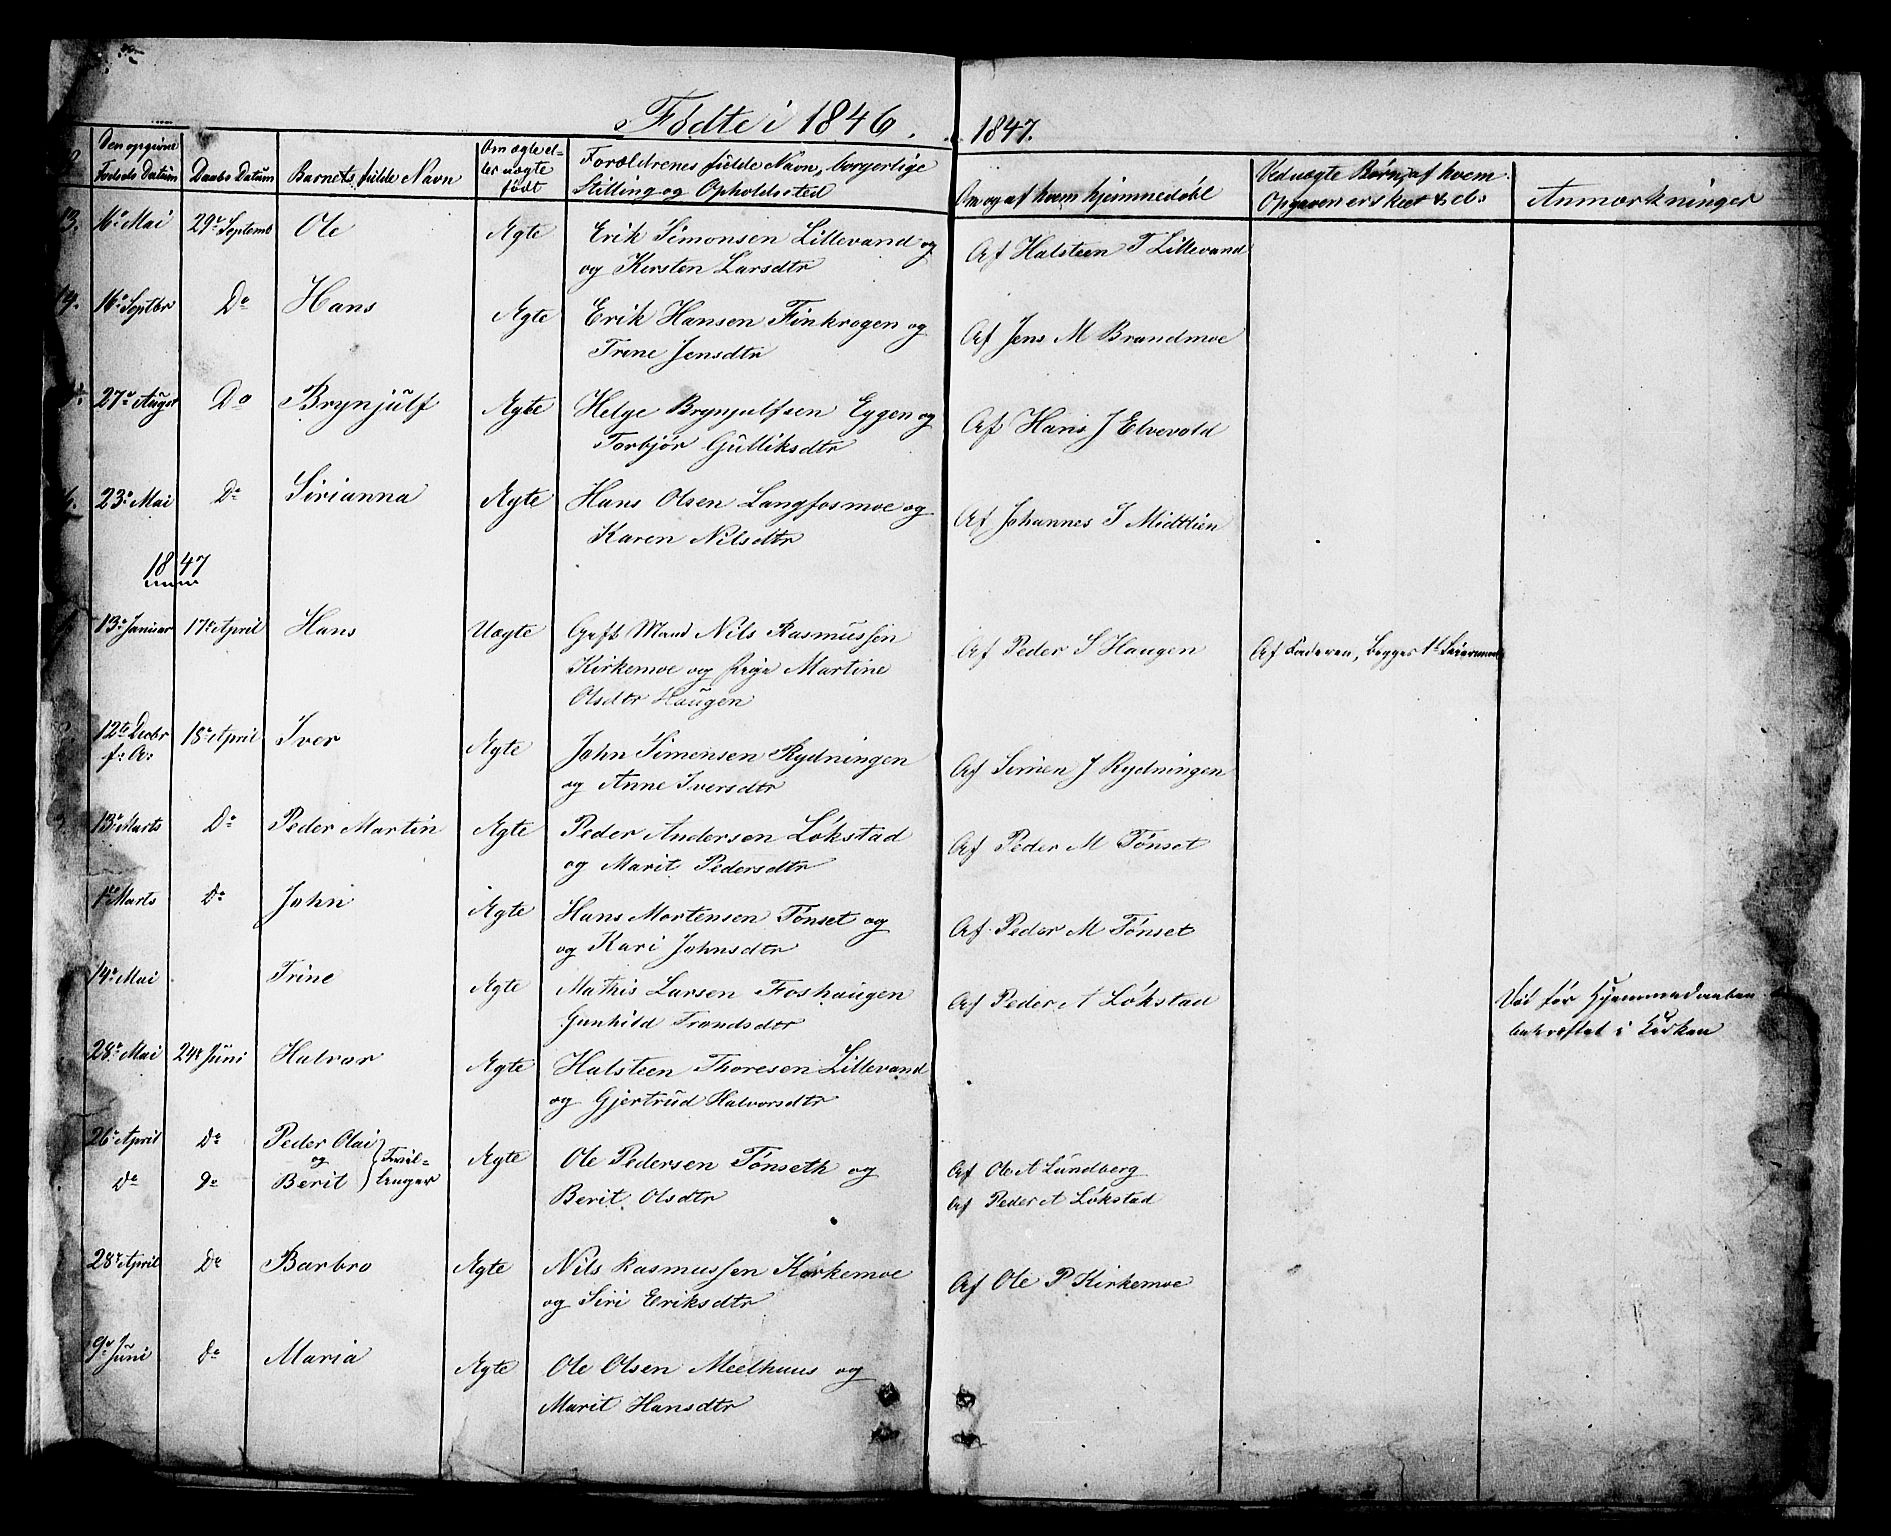 Fødte i 1846. 1847.
Den opgivne Fødsels Datum
Daabs Datum
Barnets fulde Navn
Om ægte eller uægte født
Forældrenes fulde Navn, borgerlige Stilling og Opholdssted
Om og af hvem hjemmedøbt
Ved uægte Børn, af hvem Opgaven er skeet &c:
Anmærkninger
13. 16de Mai 29de Septemb Ole Ægte Erik Simonsen Lillevand og Af Halsteen T Lillevand
og Kersten Larsdtr
14. 16de Septbr Do Hans Ægte Erik Hansen Finkrogen og Af Jens M Brandmoe
Trine Jensdtr
27de August Do Brynjulf Ægte Helge Brynjulfsen Eggen og Af Hans J Elvevold
Torbjør Gulliksdtr
23de Mai Do Sirianna Ægte Hans Olsen Langfosmoe og Af Johannes I Midtlien
Karen Nilsdtr
1847
13de Januar 17de April Hans Uægte Gift Mand Nils Rasmussen Af Peder S Haugen Af Faderen, Begges 1ste Leiermaal
Kirkemoe og Pige Martine
Olsdtr Haugen
12te Decbr 18de April Iver Ægte John Simensen Rydningen Af Simen J Rydningen
f: A: og Anne Iversdtr
13de Marts Do Peder Martin Ægte Peder Andersen Løkstad Af Peder M Tønset
og Marit Pedersdtr
1ste Marts Do John Ægte Hans Mortensen Tønset og Af Peder M Tønset
og Kari Johnsdtr
14de Mai Trine Ægte Mathis Larsen Foshaugen Af Peder A Løkstad Død før Hjemmedaaben
Gunhild Trondsdtr bekræftet i Kirken
28de Mai 24de Juni Halvor Ægte Halsteen Thoresen Lillevand
og Gjertrud Halvorsdtr
26de April Do Peder Olai Ægte Ole Pedersen Tønseth og Af Ole A Lundberg
og Tvillinger
Do Do Berit Berit Olsdtr Af Peder A Løkstad
28de April Do Barbro Ægte Nils Rasmussen Kirkemoe Af Ole P Kirkemoe
og Siri Eriksdtr
9de Juni Do Maria Ægte Ole Olsen Meelhuus og
Marit Hansdtr